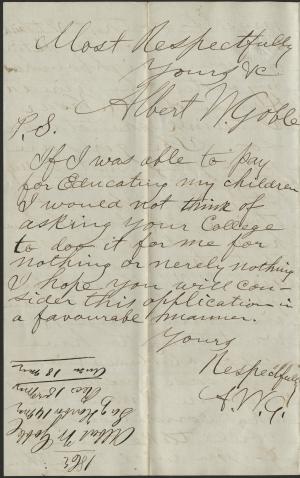 Most Respectfully
Yours &c
Albert W. Goble
P.S.
If I was able to pay
for Educating my children
I would not think of
asking your College
to doo it for me for
nothing or nerely nothing
I hope you will con-
sider this application in
a favourable manner.
Yours
Respectfully
A.W.G.
1862
Albert W. Goble